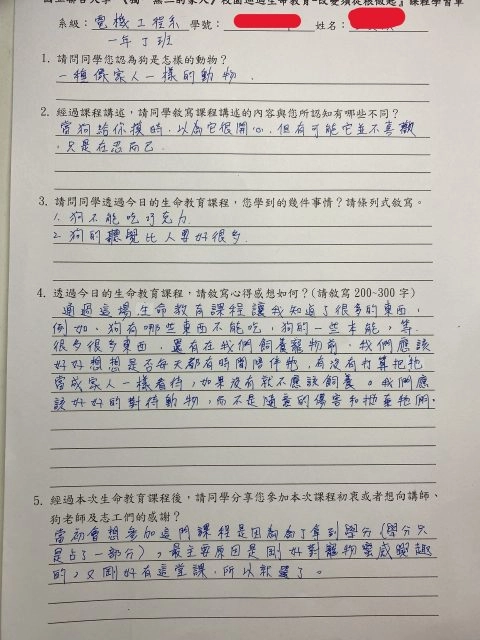 國立聯合大學 《獨一無二的家人》校園巡迴生命教育-改變須從根做起』課程學習單
系級：電機工程系 學號： 姓名：
一年丁班
1. 請問同學您認為狗是怎樣的動物？
一種像家人一樣的動物．
2. 經過課程講述，請同學敘寫課程講述的內容與您所認知有哪些不同？
當狗給你摸時．以為它很開心．但有可能它並不喜歡
．只是在忍而已．
3. 請問同學透過今日的生命教育課程，您學到的幾件事情？請條列式敘寫。
1. 狗不能吃巧克力．
2. 狗的聽覺比人要好很多．
4. 透過今日的生命教育課程，請敘寫心得感想如何？(請敘寫 200~300 字)
通過這場生命教育課程讓我知道了很多的東西，
例如、狗有哪些東西不能吃，狗的一些本能，等
很多很多東西．還有在我們飼養寵物前．我們應該
好好想想是否每天都有時間陪伴牠，有沒有打算把牠
當成家人一樣看待，如果沒有就不應該飼養。我們應
該好好的對待動物，而不是隨意的傷害和拋棄牠們．
5. 經過本次生命教育課程後，請同學分享您參加本次課程初衷或者想向講師、
狗老師及志工們的感謝？
當初會想參加這門課程是因為為了拿到學分（學分只
是占了一部分），最主要原因是剛好對寵物蠻感興趣
的，又剛好有這堂課．所以就選了。